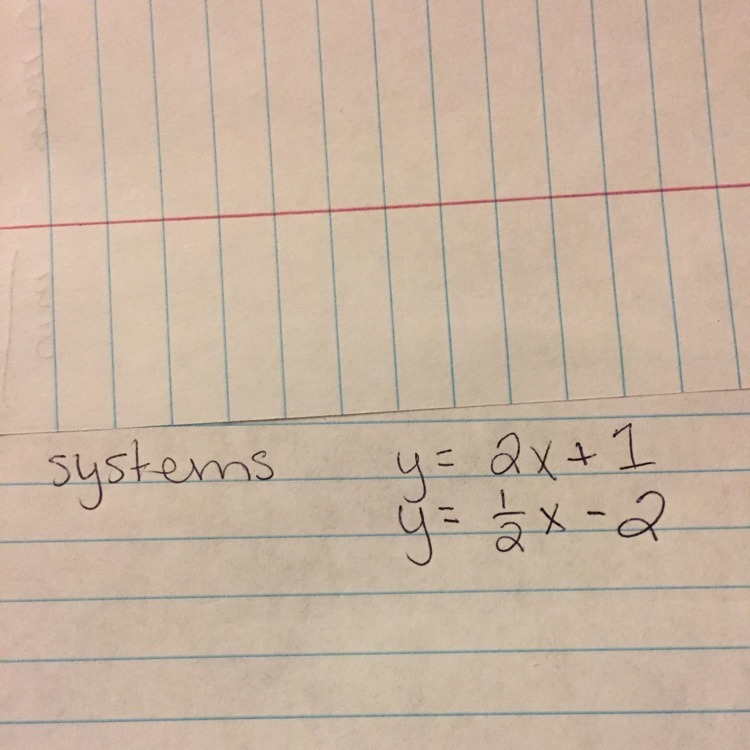 systems y = 2x + 1
y = 1/2 x - 2